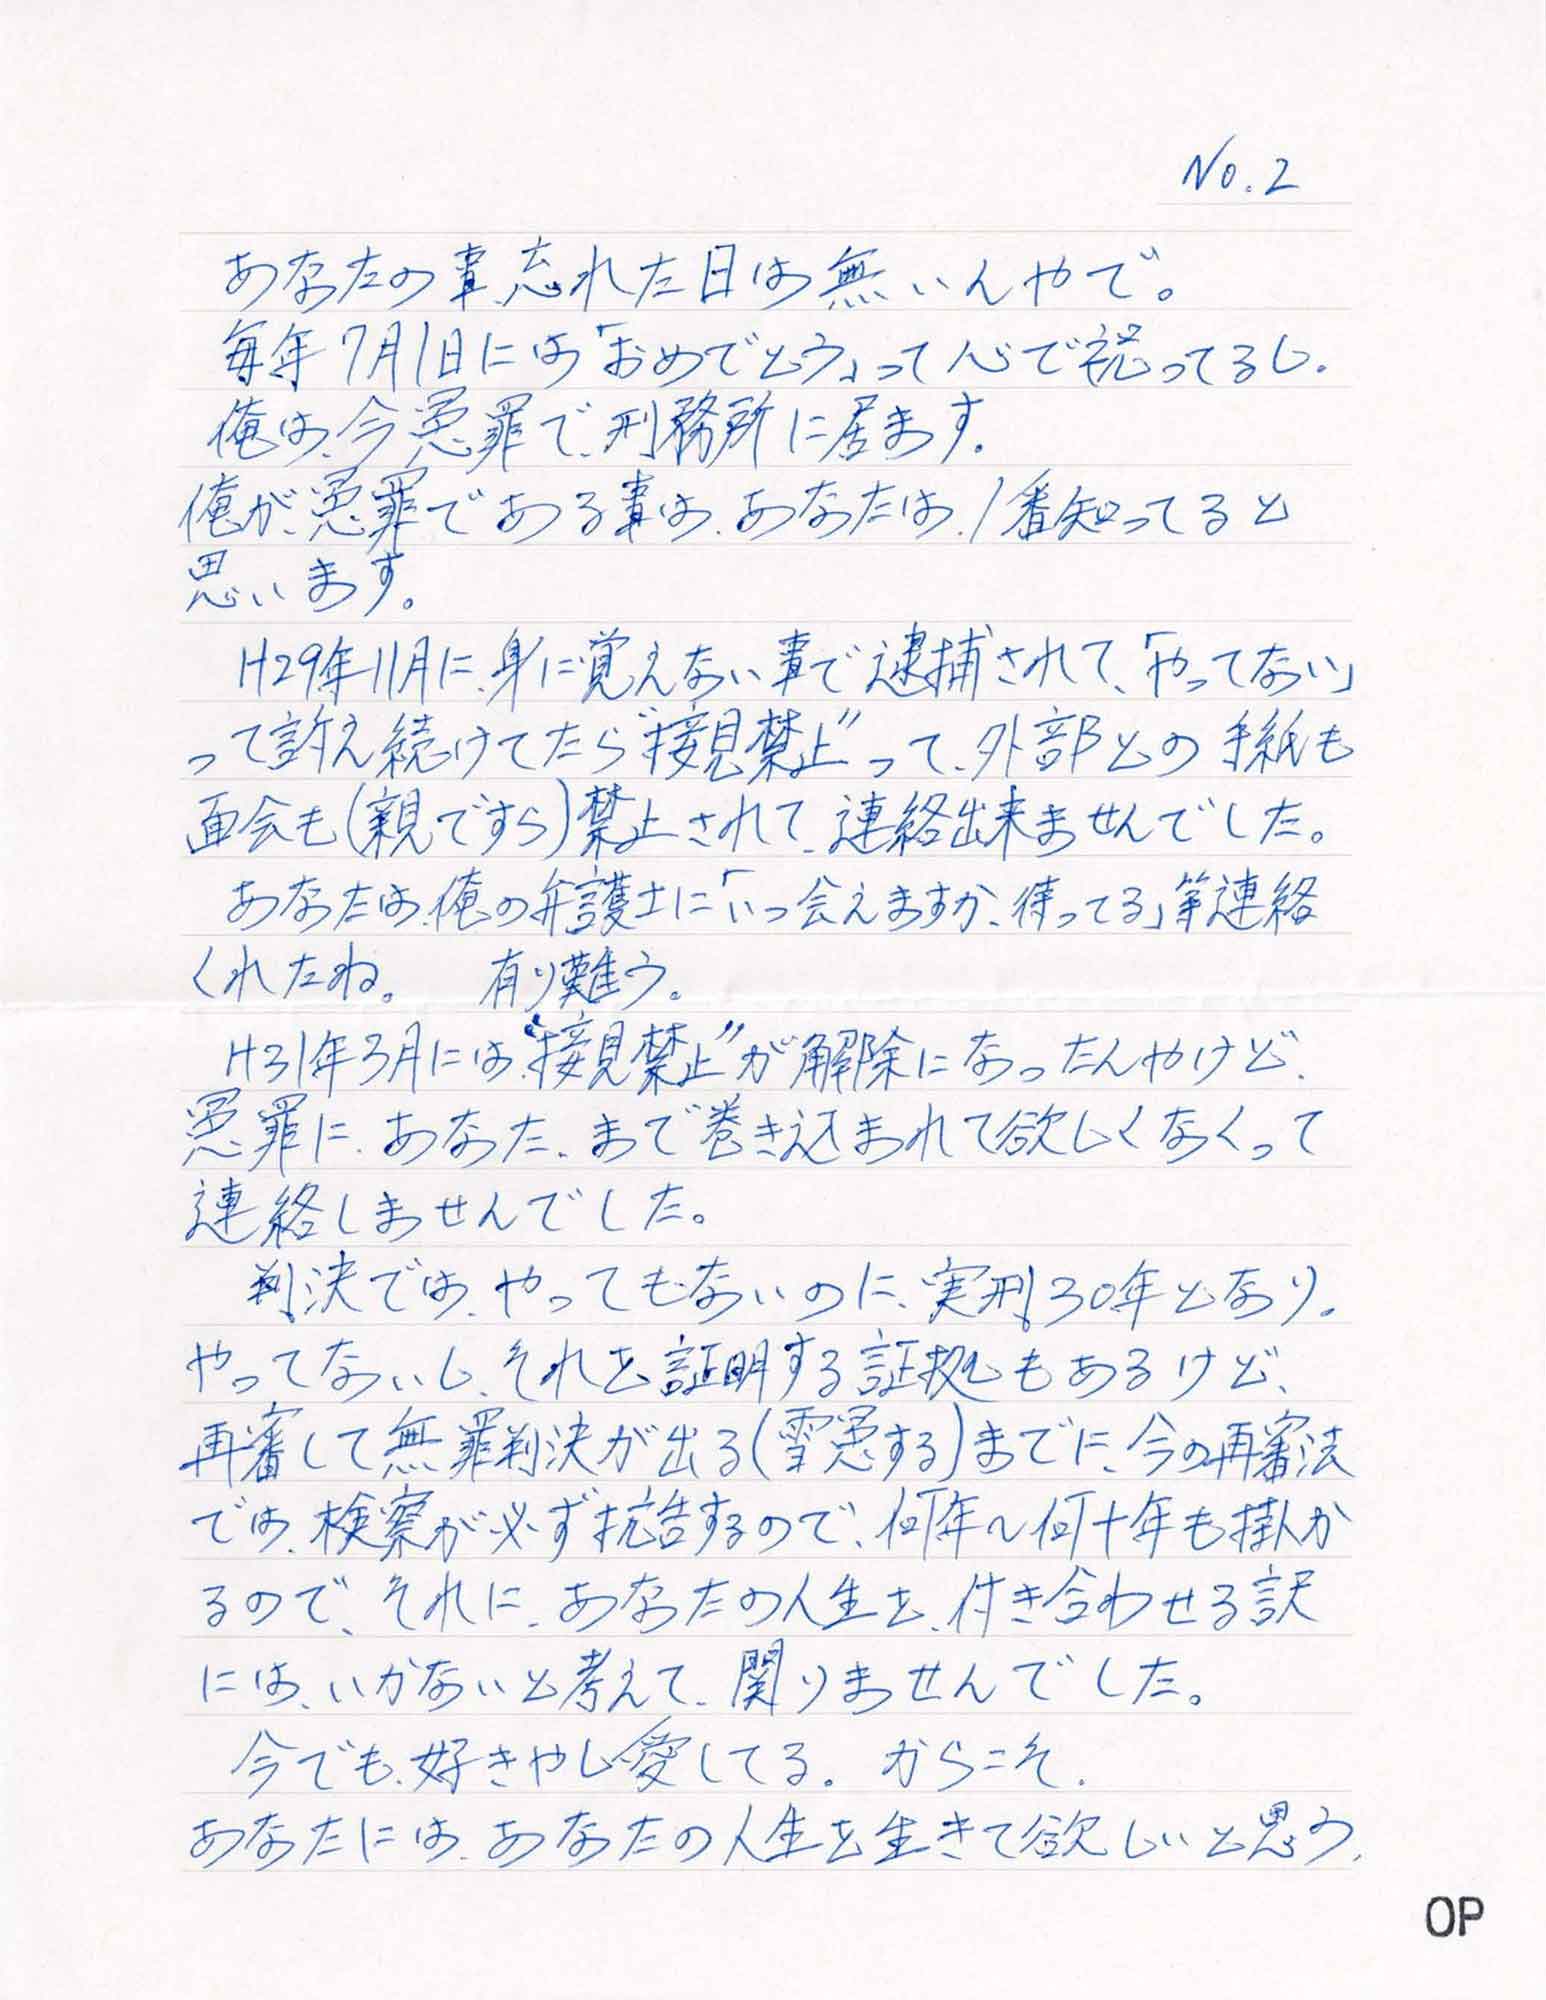 No.2
あなたの事、忘れた日は無いんやで。
毎年7月1日には「おめでとう」って心で祝ってるし.
俺は、今冤罪で、刑務所に居ます。
俺が、冤罪である事は、あなたは、1番知ってると
思います。
H29年11月に、身に覚えない事で逮捕されて、「やってない」
って訴え続けてたら"接見禁止"って、外部との手紙も
面会も(親ですら)禁止されて、連絡出来ませんでした。
あなたは、俺の弁護士に「いつ会えますか、待ってる」等連絡
くれたね。 有り難う。
H31年3月には、"接見禁止"が解除になったんやけど、
冤罪に、あなた、まで巻き込まれて欲しくなくって
連絡しませんでした。
判決では、やってもないのに、実刑30年となり。
やってないし、それを証明する証拠もあるけど、
再審して無罪判決が出る(雪冤する)までに、今の再審法
では、検察が必ず抗告するので、何年〜何十年も掛か
るので、それに、あなたの人生を、付き合わせる訳
には、いかないと考えて、関りませんでした。
今でも、好きやし愛してる。 からこそ、
あなたには、あなたの人生を生きて欲しいと思う、
OP